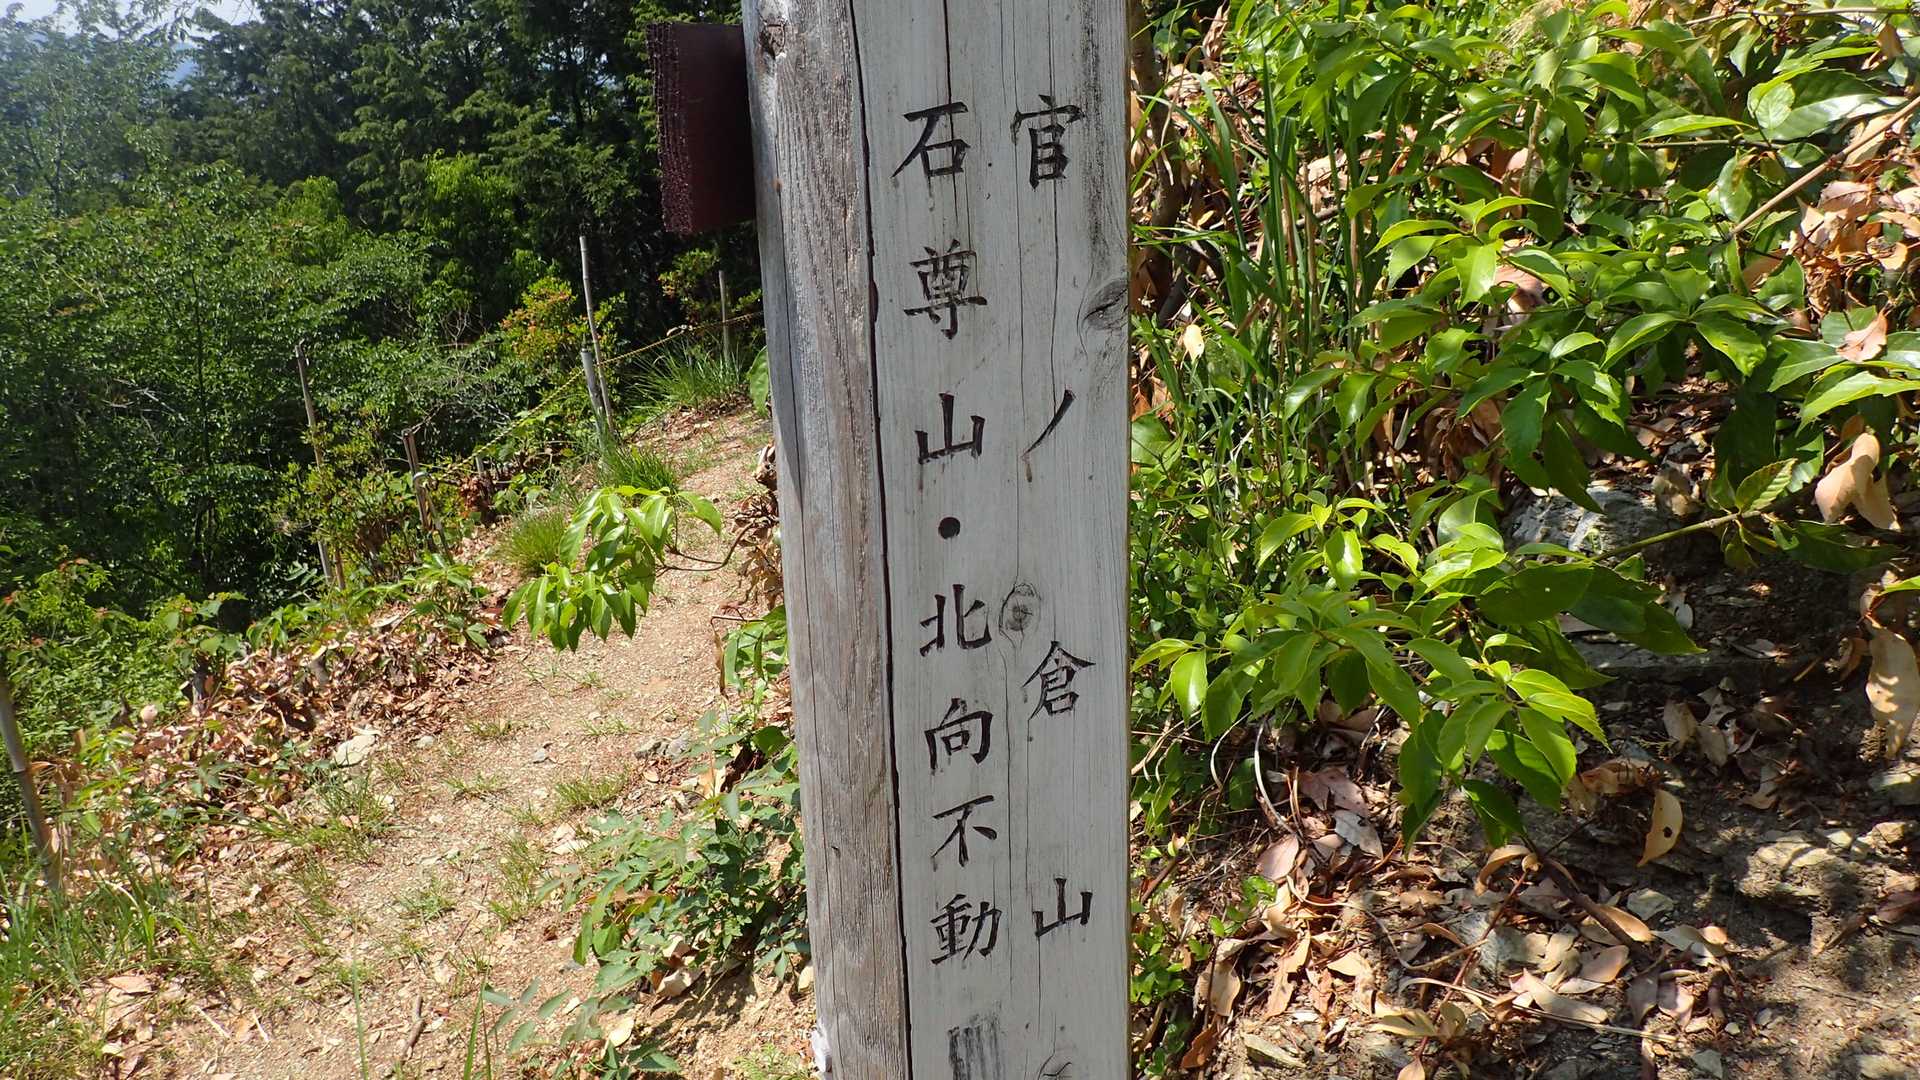 官ノ倉山
石尊山・北向不動